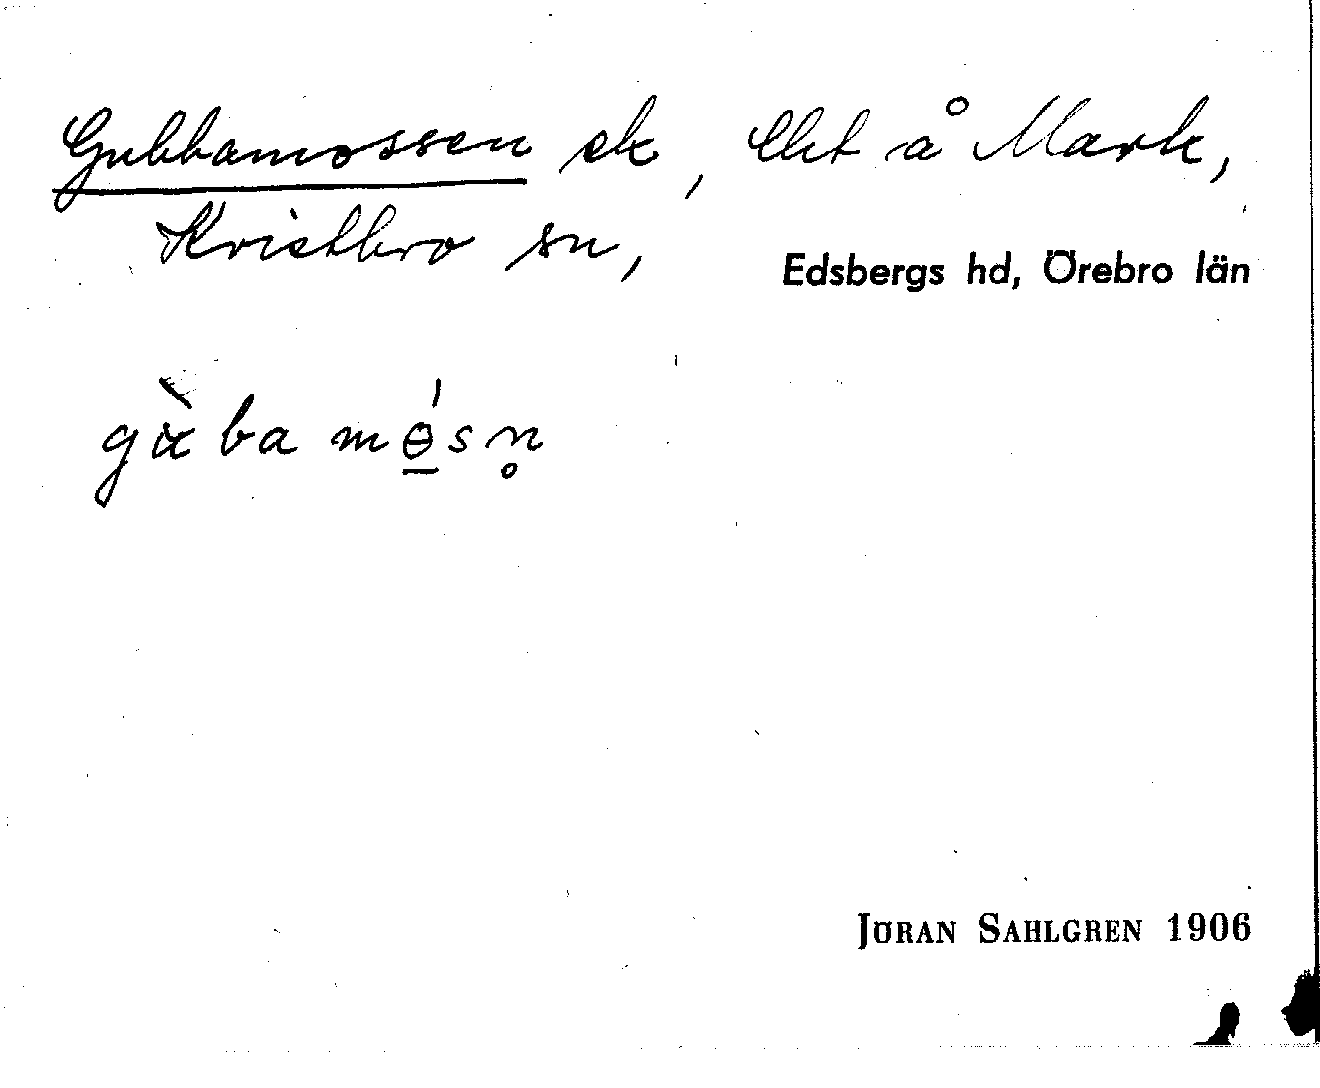 Gubbamossen sk, Ekt å Mark,
Kvistbro sn,
Edsbergs hd, Örebro län
gὰba mǿsn̥
JÖRAN SAHLGREN 1906